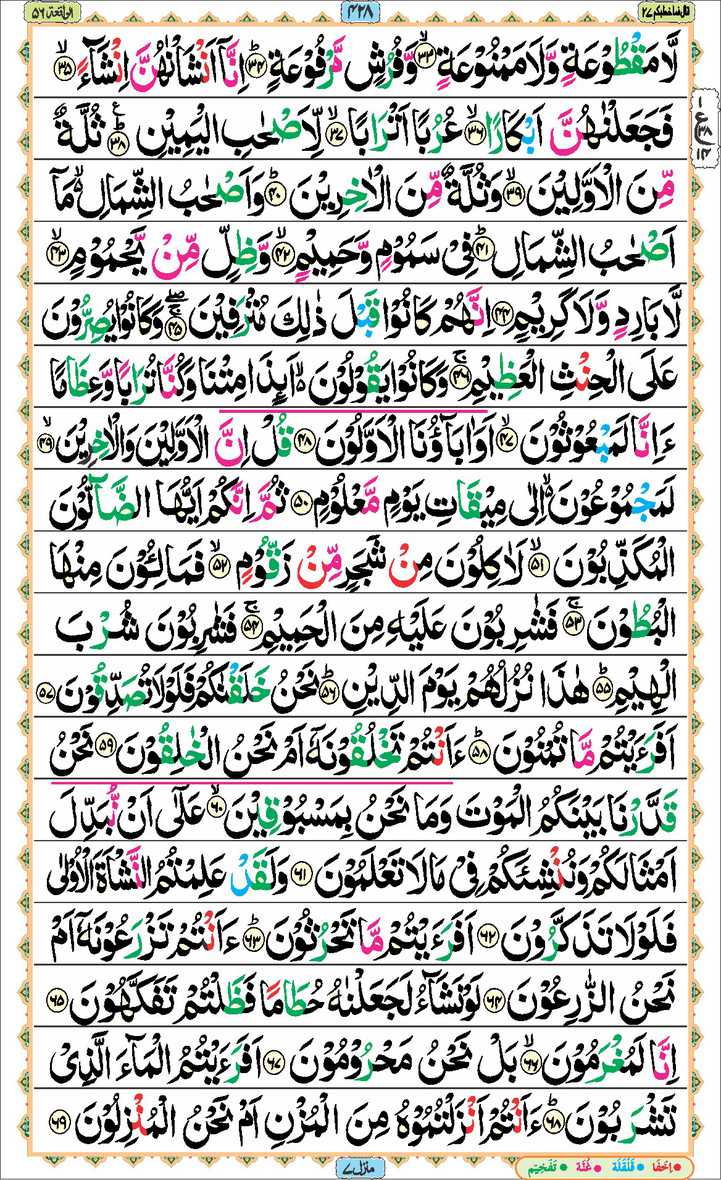 قال فما خطبكم ٢٧ ۴۲۸ الواقعة ۵۶
لَّا مَقْطُوْعَةٍ وَّلَا مَمْنُوْعَةٍۙ۳۳ وَّفُرُشٍ مَّرْفُوْعَةٍؕ۳۴ اِنَّاۤ اَنْشَاْنٰهُنَّ اِنْشَآءًۙ۳۵
فَجَعَلْنٰهُنَّ اَبْكَارًاۙ۳۶ عُرُبًا اَتْرَابًاۙ۳۷ لِّاَصْحٰبِ الْيَمِيْنِؕ۳۸ ثُلَّةٌ
مِّنَ الْاَوَّلِيْنَۙ۳۹ وَثُلَّةٌ مِّنَ الْاٰخِرِيْنَؕ۴۰ وَاَصْحٰبُ الشِّمَالِ ۙ مَاۤ
اَصْحٰبُ الشِّمَالِؕ۴۱ فِيْ سَمُوْمٍ وَّحَمِيْمٍۙ۴۲ وَّظِلٍّ مِّنْ يَّحْمُوْمٍۙ۴۳
لَّا بَارِدٍ وَّلَا كَرِيْمٍ۴۴ اِنَّهُمْ كَانُوْا قَبْلَ ذٰلِكَ مُتْرَفِيْنَۚۖ۴۵ وَكَانُوْا يُصِرُّوْنَ
عَلَى الْحِنْثِ الْعَظِيْمِۚ۴۶ وَكَانُوْا يَقُوْلُوْنَ ۙ اَىِٕذَا مِتْنَا وَكُنَّا تُرَابًا وَّعِظَامًا
ءَاِنَّا لَمَبْعُوْثُوْنَۙ۴۷ اَوَاٰبَآؤُنَا الْاَوَّلُوْنَ۴۸ قُلْ اِنَّ الْاَوَّلِيْنَ وَالْاٰخِرِيْنَۙ۴۹
لَمَجْمُوْعُوْنَ ۙ اِلٰى مِيْقَاتِ يَوْمٍ مَّعْلُوْمٍ۵۰ ثُمَّ اِنَّكُمْ اَيُّهَا الضَّآلُّوْنَ
الْمُكَذِّبُوْنَۙ۵۱ لَاٰكِلُوْنَ مِنْ شَجَرٍ مِّنْ زَقُّوْمٍۙ۵۲ فَمَالِـُٔوْنَ مِنْهَا
الْبُطُوْنَۚ۵۳ فَشٰرِبُوْنَ عَلَيْهِ مِنَ الْحَمِيْمِۚ۵۴ فَشٰرِبُوْنَ شُرْبَ
الْهِيْمِؕ۵۵ هٰذَا نُزُلُهُمْ يَوْمَ الدِّيْنِؕ۵۶ نَحْنُ خَلَقْنٰكُمْ فَلَوْلَا تُصَدِّقُوْنَ۵۷
اَفَرَءَيْتُمْ مَّا تُمْنُوْنَؕ۵۸ ءَاَنْتُمْ تَخْلُقُوْنَهٗۤ اَمْ نَحْنُ الْخٰلِقُوْنَ۵۹ نَحْنُ
قَدَّرْنَا بَيْنَكُمُ الْمَوْتَ وَمَا نَحْنُ بِمَسْبُوْقِيْنَۙ۶۰ عَلٰۤى اَنْ نُّبَدِّلَ
اَمْثَالَكُمْ وَنُنْشِئَكُمْ فِيْ مَا لَا تَعْلَمُوْنَ۶۱ وَلَقَدْ عَلِمْتُمُ النَّشْاَةَ الْاُوْلٰى
فَلَوْلَا تَذَكَّرُوْنَ۶۲ اَفَرَءَيْتُمْ مَّا تَحْرُثُوْنَؕ۶۳ ءَاَنْتُمْ تَزْرَعُوْنَهٗۤ اَمْ
نَحْنُ الزّٰرِعُوْنَ۶۴ لَوْ نَشَآءُ لَجَعَلْنٰهُ حُطَامًا فَظَلْتُمْ تَفَكَّهُوْنَ۶۵
اِنَّا لَمُغْرَمُوْنَۙ۶۶ بَلْ نَحْنُ مَحْرُوْمُوْنَ۶۷ اَفَرَءَيْتُمُ الْمَآءَ الَّذِيْ
تَشْرَبُوْنَؕ۶۸ ءَاَنْتُمْ اَنْزَلْتُمُوْهُ مِنَ الْمُزْنِ اَمْ نَحْنُ الْمُنْزِلُوْنَ۶۹
منزل ۷
اِخفَا قَلقَلَة غُنَّة تَفْخِيْم